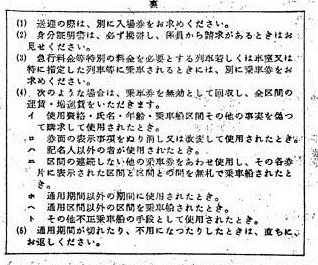 裏
(1) 送迎の際は、別に入場券をお求めください。
(2) 身分証明書は、必ず携帯し、係員から請求があるときはお
見せください。
(3) 急行料金等特別の料金を必要とする列車若しくは車室又は
特に指定した列車等に乗車されるときには、別に乗車券をお
求めください。
(4) 次のような場合は、乗車券を無効として回収し、全区間の
運賃・増運賃をいただきます。
イ 使用資格・氏名・年齢・乗車船区間その他の事実を偽つ
て購求して使用されたとき。
ロ 券面の表示事項をぬり消し又は改変して使用されたとき。
ハ 記名人以外の者が使用されたとき。
ニ 区間の連続しない他の乗車券をあわせ使用し、その各券
片に表示された区間と区間との間を無札で乗車されたと
き。
ホ 通用期間以外の期間に使用されたとき。
ヘ 通用区間以外の区間を乗車船されたとき。
ト その他不正乗車船の手段として使用されたとき。
(5) 通用期間が切れたり、不用になつたりしたときは、直ちに、
お返しください。